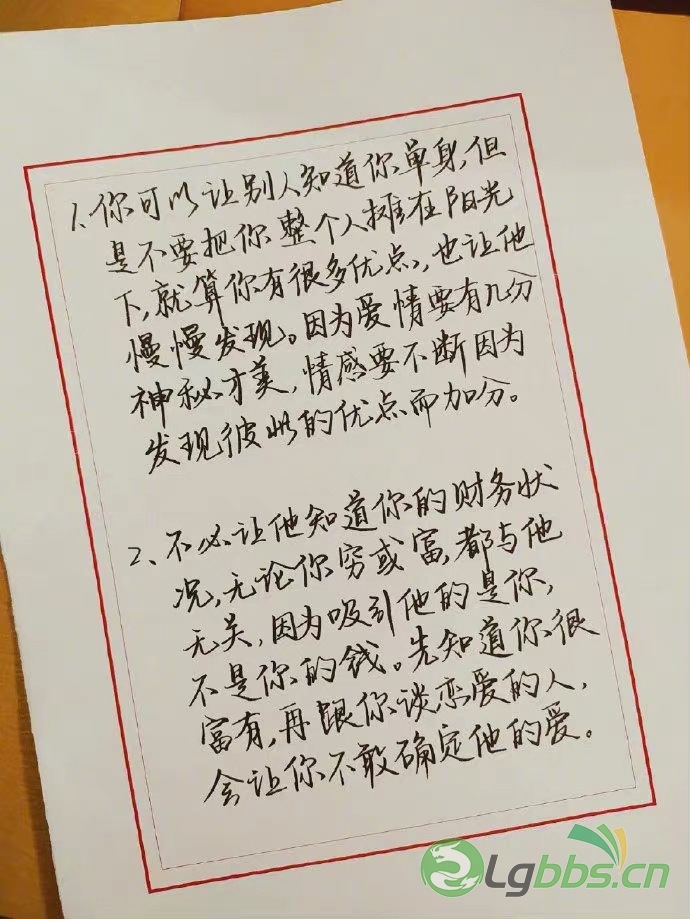 1、你可以让别人知道你单身,但
是不要把你整个人摊在阳光
下,就算你有很多优点,也让他
慢慢发现。因为爱情要有几分
神秘才美,情感要不断因为
发现彼此的优点而加分。
2、不必让他知道你的财务状
况,无论你穷或富,都与他
无关,因为吸引他的是你,
不是你的钱。先知道你很
富有,再跟你谈恋爱的人,
会让你不敢确定他的爱。
Lgbbs.cn